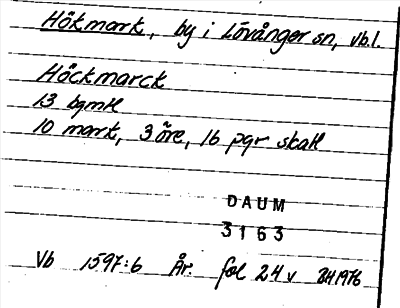 Hökmark, by i Lövånger sn, Vb.l.
Höckmarck
13 bgmtl
10 mark, 3 öre, 16 pgr skatt
DAUM
3163
Vb 1597:6 År. fol 24 v